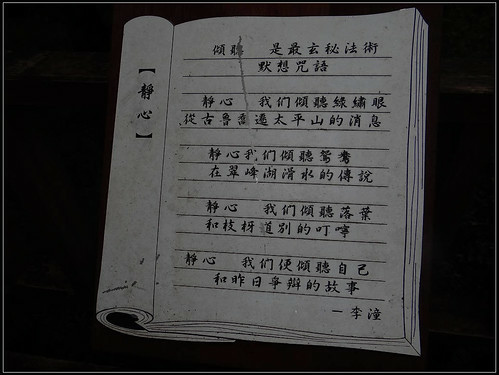 【靜心】
傾聽 是最玄秘法術
默想咒語
靜心 我们傾聽綠繡眼
從古魯喬遷太平山的消息
靜心我们傾聽鴛鴦
在翠峰湖滑水的傳說
靜心 我们傾聽落葉
和枝枒道別的叮嚀
靜心 我们便傾聽自己
和昨日爭辯的故事
－李潼